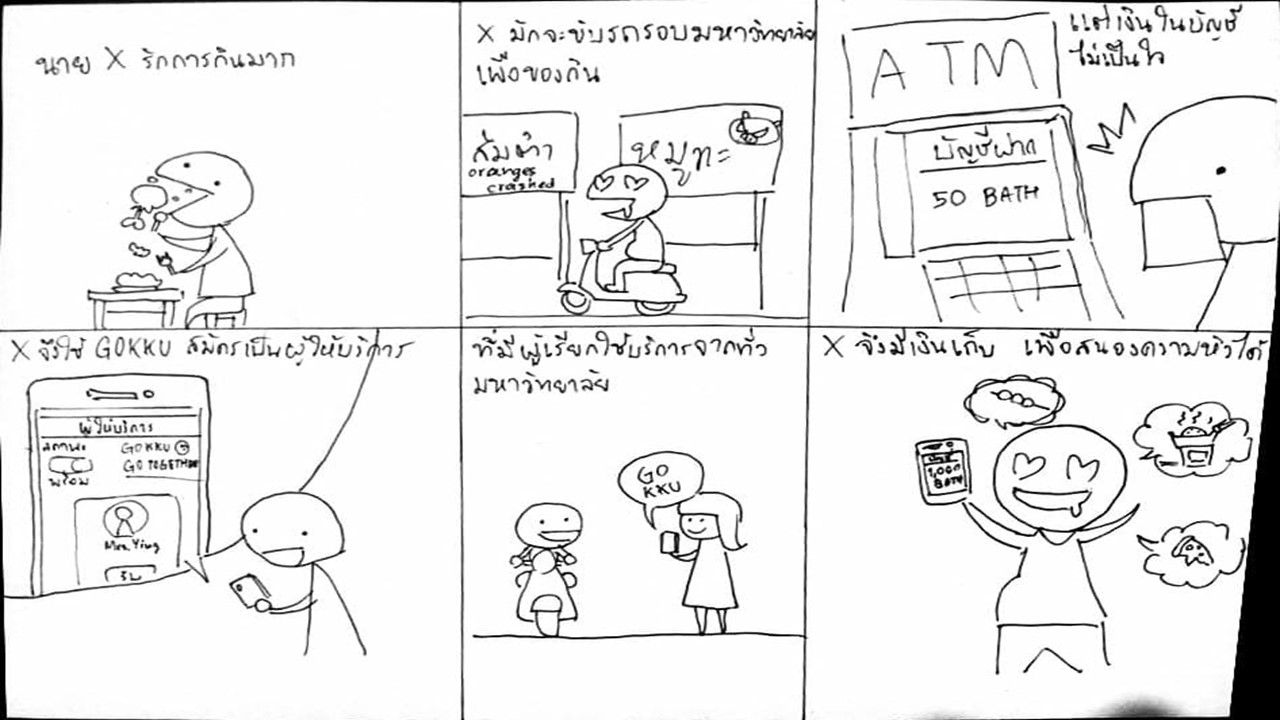 นาย X รักการกินมาก
X มักจะขับรถรอบมหาวิทยาลัย
เพื่อของกิน
ส้มตำ
oranges
crashed
หมูทะ
แต่เงินในบัญชี
ไม่เป็นใจ
ATM
บัญชีฝาก
50 BATH
X จึงใช้ GOKKU สมัครเป็นผู้ให้บริการ
ผู้ให้บริการ
สถานะ
GOKKU
GO TOGETHER
พร้อม
Mrs. Ying
รับ
ที่มีผู้เรียกใช้บริการจากทั่ว
มหาวิทยาลัย
GO
KKU
X จึงมีเงินเก็บ เพื่อสนองความหิวได้
1,000
BATH